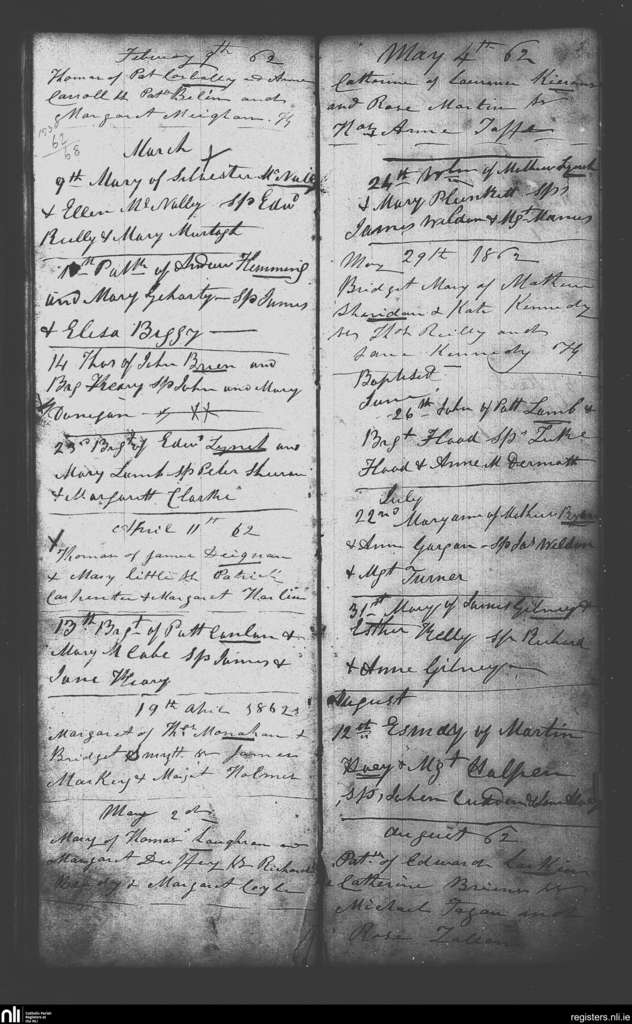 February 9th 62
Thomas of Pat Corbally and Anne
Carroll by Patk and
Margaret Meighan
62
68
March
9th Mary of Silvester McNally
& Ellen McNally Sps Edwd
Reilly & Mary Murtagh
Patk of Andrew Flemming
and Mary Geharty Sp James
& Elisa Beggy
14 Thos of John Brien and
Brig Keary Sp John and Mary
Donegan
23rd Brigt of Edwd Lynch and
Mary Lamb Sp Peter
& Margarett Clarke
April 11th 62
Thomas of James Deignan
& Mary Little by Patrick
Carpenter & Margaret
13th Brigt of Patt Conlan &
Mary McCabe Sps James &
Jane Keary
19th April 1862
Margaret of Thos Monahan &
Bridget Smyth by James
Markey & Margt Holmes
May 2d
Mary of Thomas Loughran and
Margaret Duffey by Richard
& Margaret Coyle
May 4th 62
Catherine of Laurence Kiernan
and Rose Martin by
Anne Taffe
24th John of Mathew Lynch
& Mary Plunkett Sps
James Weldon & Mgt
May 29th 1862
Bridget Mary of Mathew
Sheridan & Kate Kennedy
by Thos Reilly and
Jane Kennedy
Baptised
June
26th John of Patt Lamb &
Brigt Flood Sps Luke
Flood & Anne McDermott
July
22nd Maryanne of Mathew
& Ann Gargan Sp Jas Weldon
& Mgt Turner
31st Mary of James Gilney &
Esther Kelly Sp Richard
& Anne Gilney
August
12th of Martin
Huey & Mgt Halpen
Sps John
August 62
Patk of Edward
Catherine by
Michael Fagan and
Rose
nli
Catholic Parish
Registers at
the NLI
registers.nli.ie